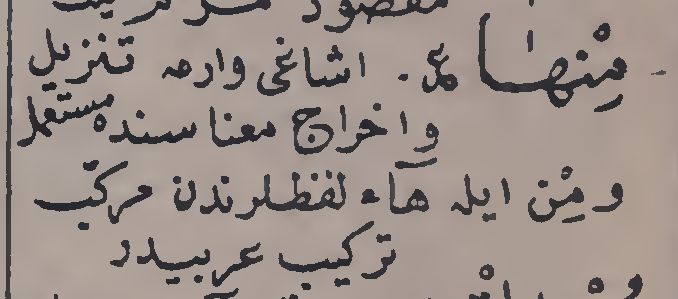 مقصود
مِنْها عر. اشاغی وارمه تنزیل
و اخراج معناسنده مستعمل
و مِنْ ایله هاء لفظلرندن مركّب
تركیب عربیدر